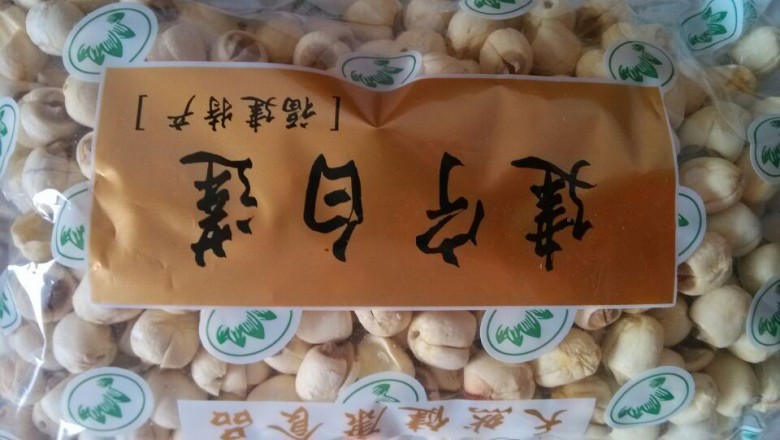 天然健康食品
建宁白莲
[福建特产]